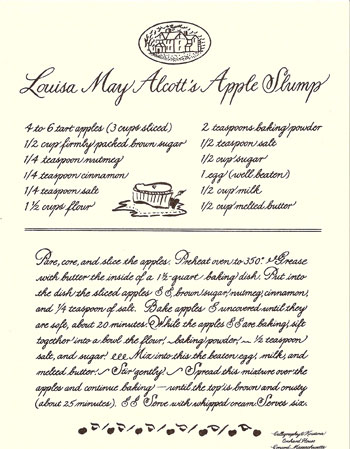 Louisa May Alcott's Apple Slump
4 to 6 tart apples (3 cups sliced)
1/2 cup firmly packed brown sugar
1/4 teaspoon nutmeg
1/4 teaspoon cinnamon
1/4 teaspoon salt
1½ cups flour
2 teaspoons baking powder
1/2 teaspoon salt
1/2 cup sugar
1 egg (well beaten)
1/2 cup milk
1/2 cup melted butter
Pare, core, and slice the apples. Preheat oven to 350°. Grease
with butter the inside of a 1½-quart baking dish. Put into
the dish the sliced apples & brown sugar, nutmeg, cinnamon,
and ¼ teaspoon of salt. Bake apples uncovered until they
are soft, about 20 minutes. While the apples are baking, sift
together into a bowl the flour, baking powder, ½ teaspoon
salt, and sugar. Mix into this the beaten egg, milk, and
melted butter. Stir gently! Spread this mixture over the
apples and continue baking — until the top is brown and crusty
(about 25 minutes). Serve with whipped cream. Serves six.
Orchard House
Concord, Massachusetts